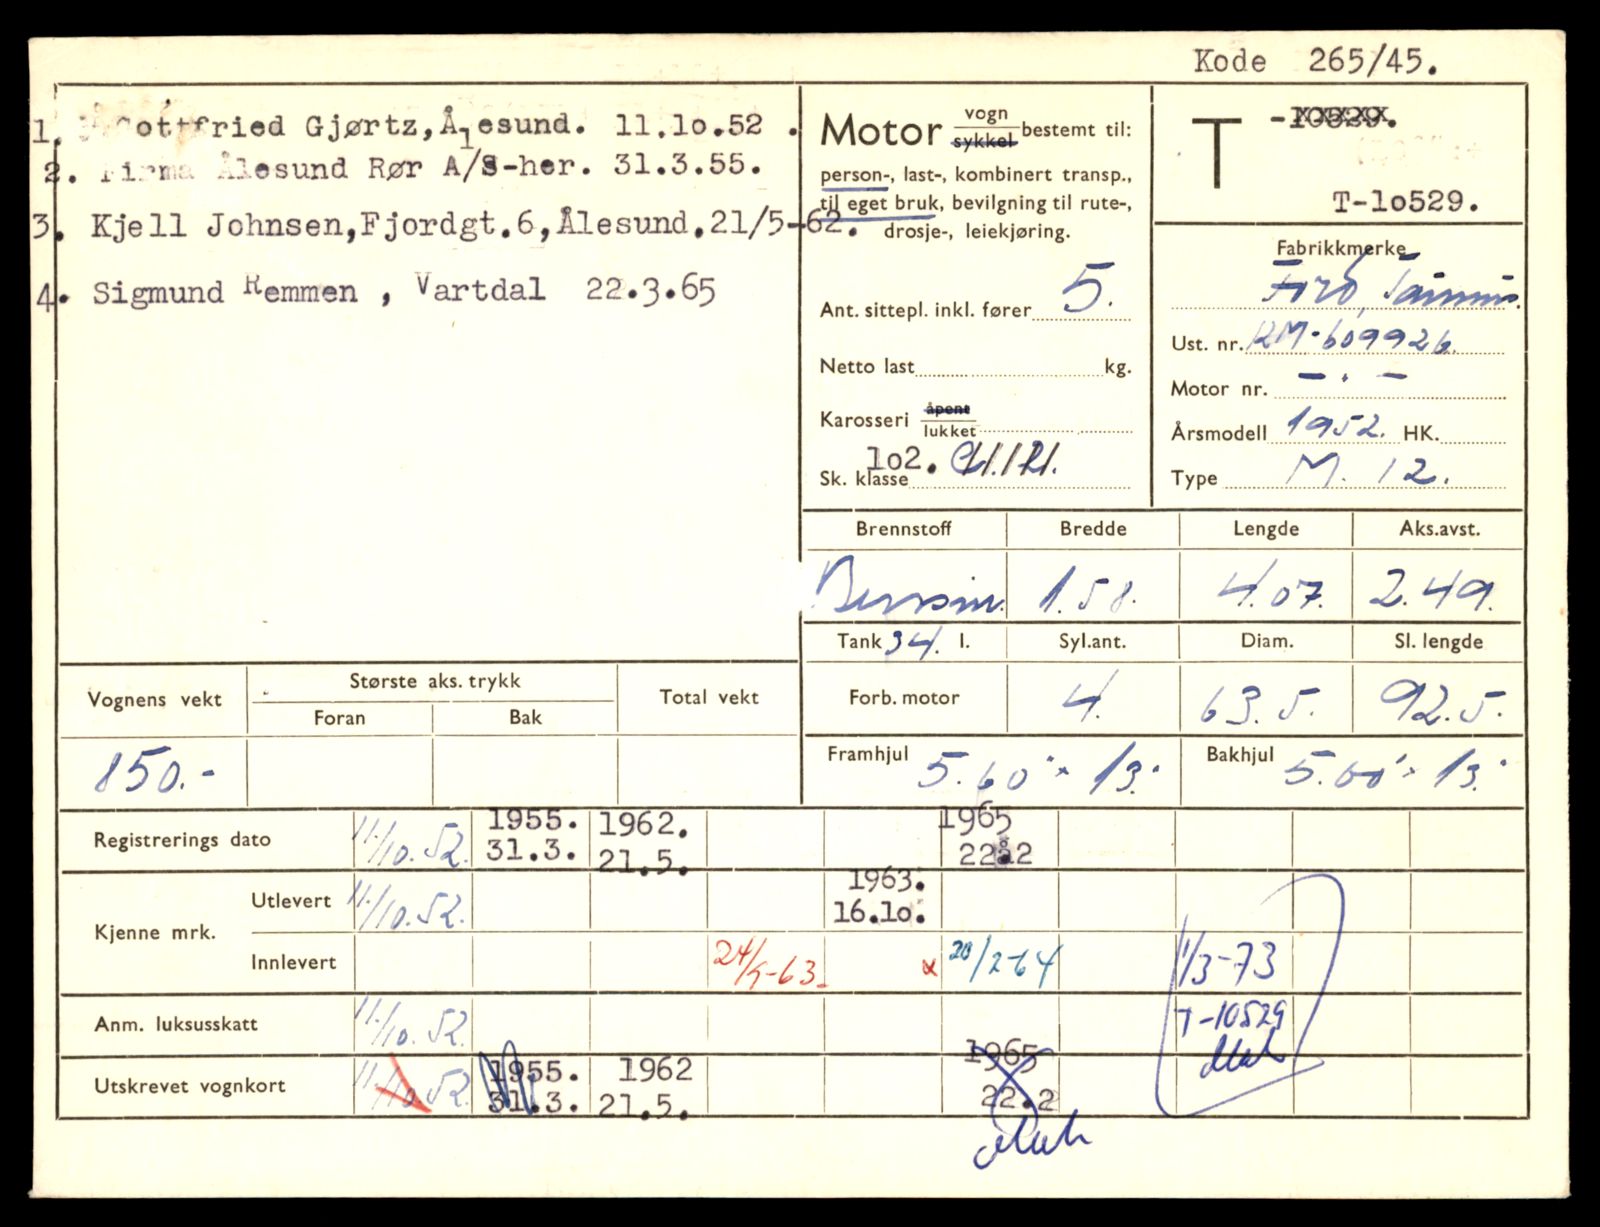 Kode 265/45.
1. Gottfried Gjørtz, Ålesund. 11.10.52 .
2. Firma Ålesund Rør A/S-her. 31.3.55.
3. Kjell Johnsen,Fjordgt.6,Ålesund.21/5-62.
4. Sigmund Remmen , Vartdal 22.3.65
Motor vogn sykkel bestemt til:
person-, last-, kombinert transp.,
til eget bruk, bevilgning til rute-,
drosje-, leiekjøring.
Ant. sittepl. inkl. fører 5.
Netto last kg.
Karosseri åpent lukket
102.
Sk. klasse
T -10529.
T-10529.
Fabrikkmerke
Ford, Taunus.
Ust. nr. RM-609926.
Motor nr. - . -
Årsmodell 1952. HK.
Type M. 12.
Brennstoff Bredde Lengde Aks.avst.
Bensin. 1.58. 4.07. 2.49.
Tank 34. l. Syl.ant. Diam. Sl. lengde
Forb. motor 4. 63.5. 92.5.
Framhjul 5.60" x 13." Bakhjul 5.60" x 13."
Vognens vekt Største aks. trykk Total vekt
Foran Bak
850.-
Registrerings dato 11/10.52. 1955. 31.3. 1962. 21.5. 1965 22å2
Kjenne mrk.
Utlevert 11/10.52. 1963. 16.10.
Innlevert 24/5-63. x 20/2-64 1/3-73
Anm. luksusskatt 11/10.52. T-10529
Utskrevet vognkort 11/10.52. 1955. 31.3. 1962 21.5. 1965 22.2